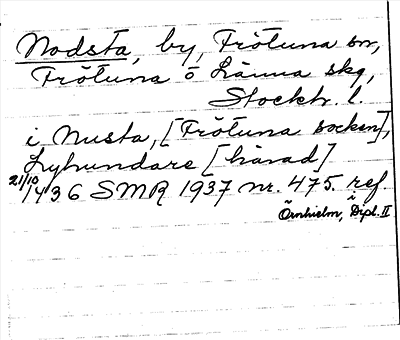 Nodsta, by, Frötuna sn,
Frötuna o Länna skg,
Stockh. l.
i Nusta, [Frötuna socken],
Lyhundare [härad]
21/10 1436 SMR 1937 nr. 475. ref.
Örnhielm, Dipl. II